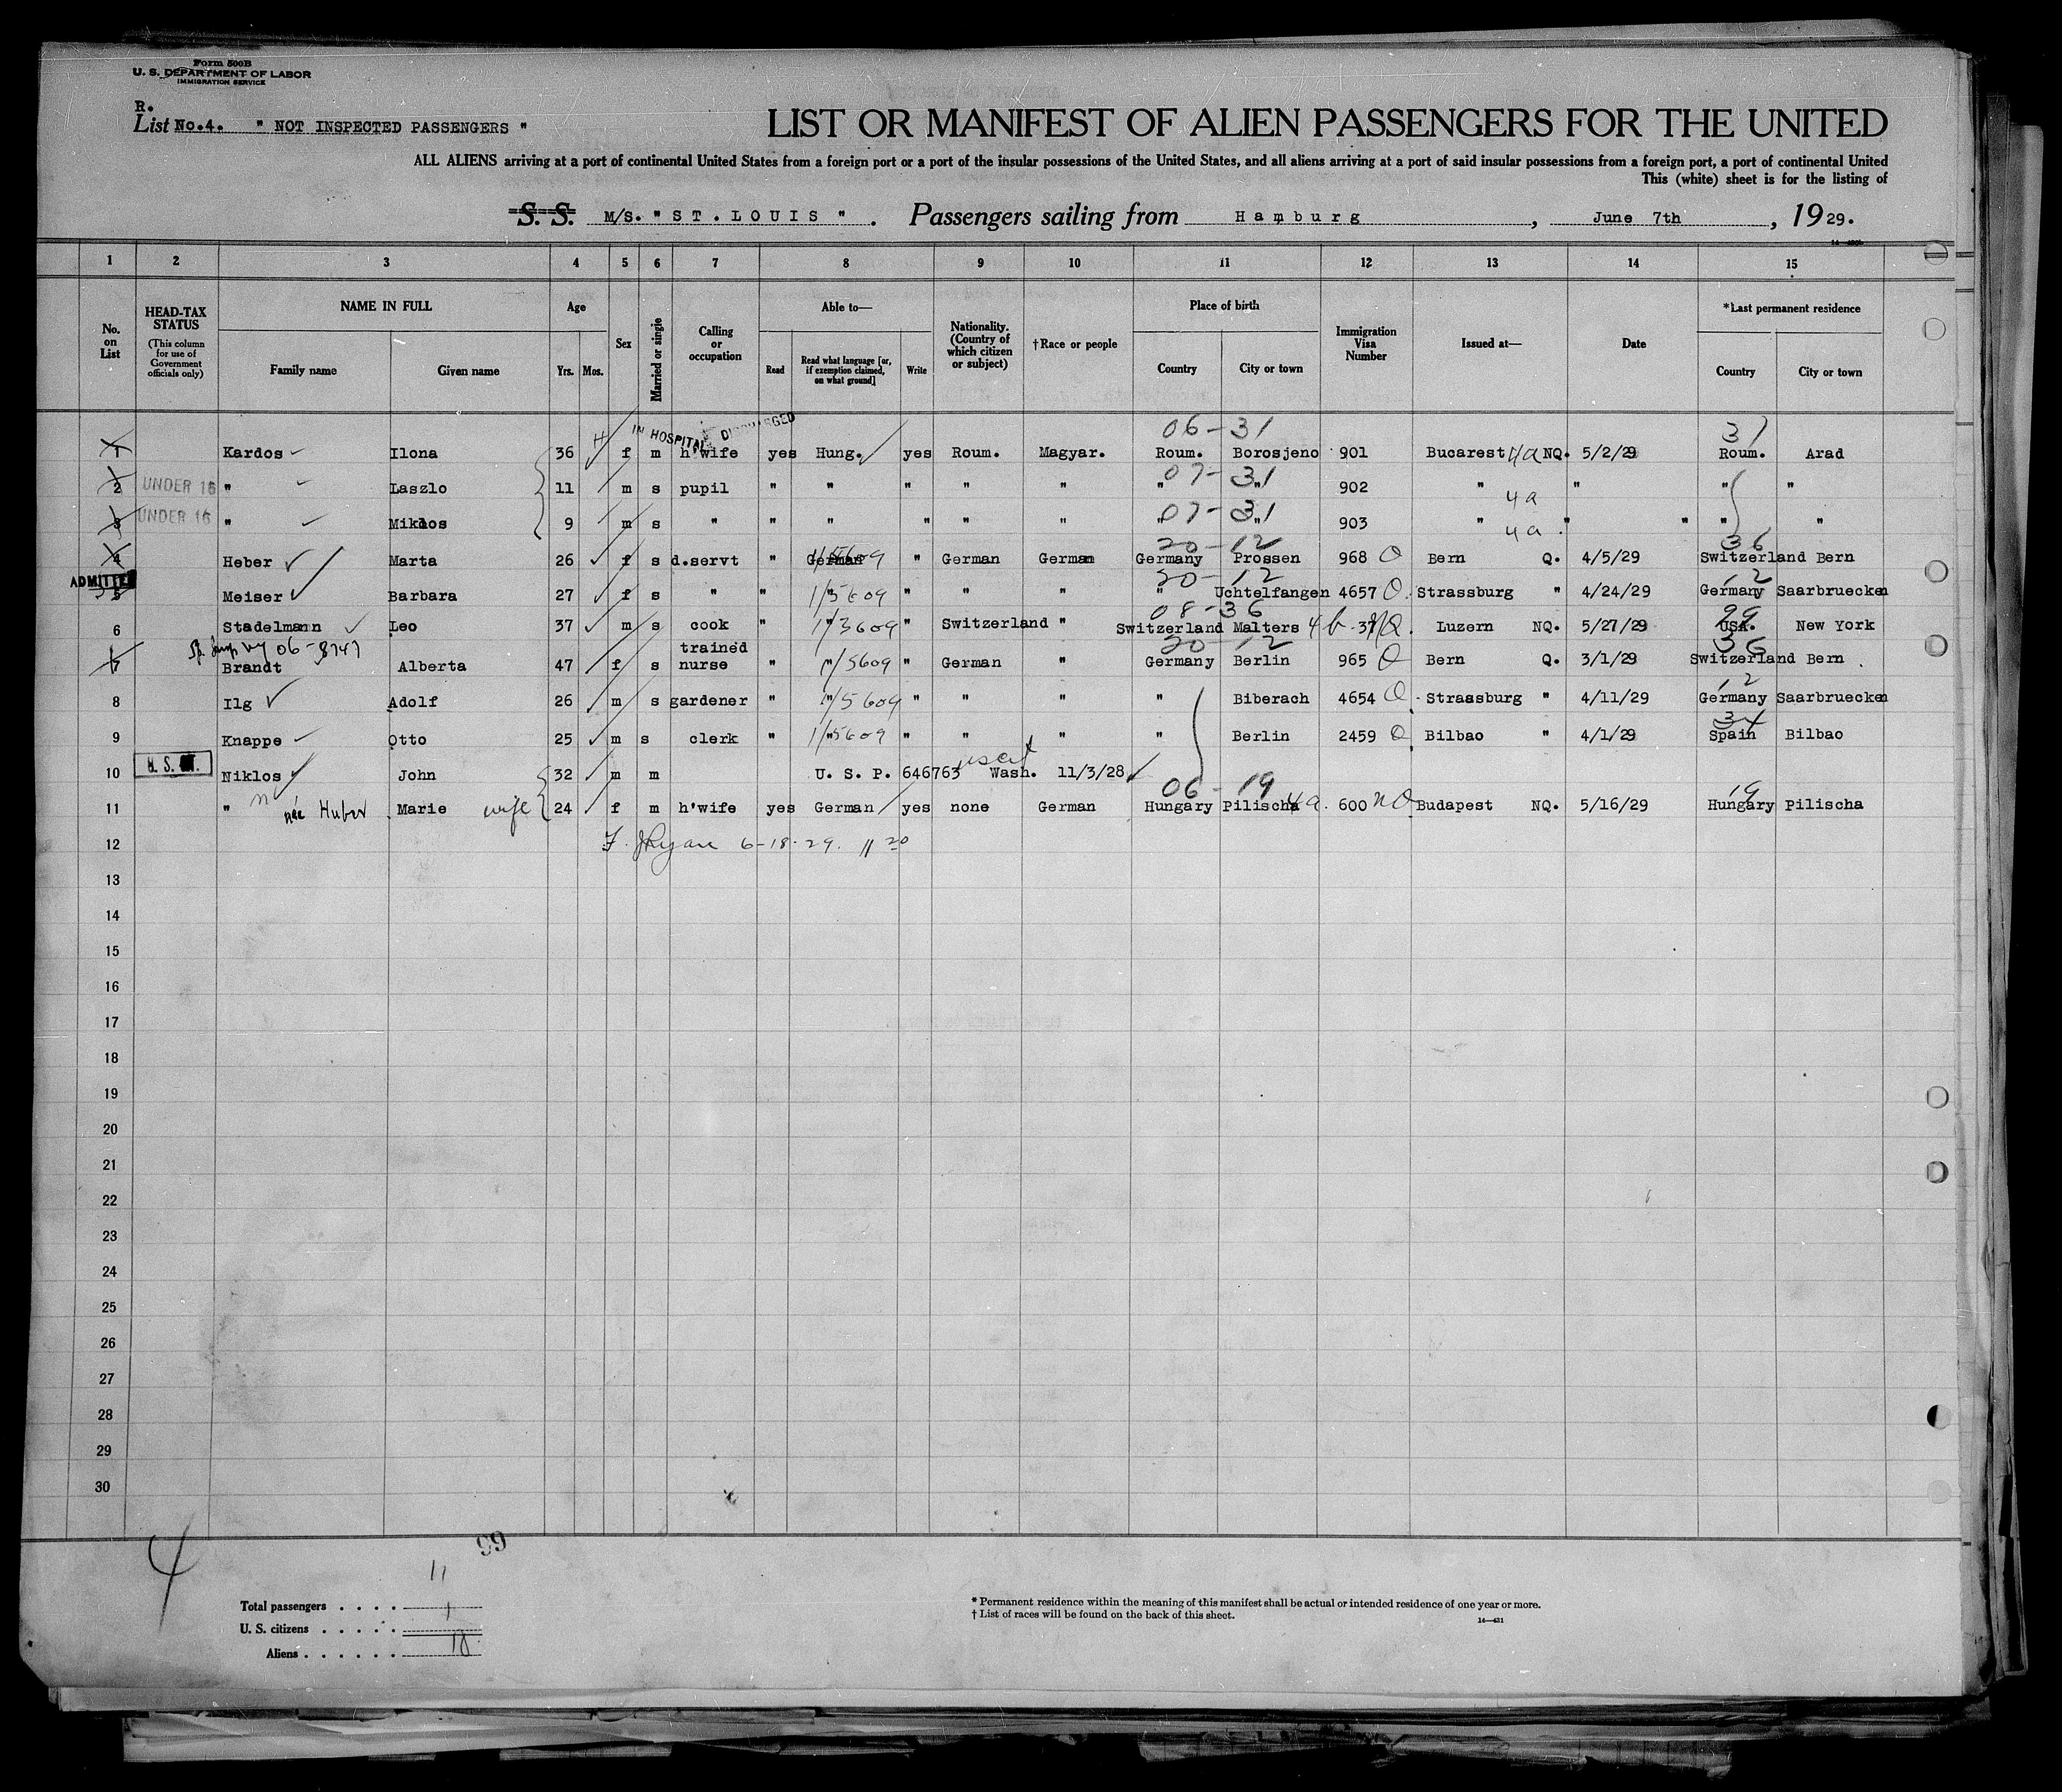 Form 500B
U. S. DEPARTMENT OF LABOR
IMMIGRATION SERVICE
R.
List No.4. " NOT INSPECTED PASSENGERS "
LIST OR MANIFEST OF ALIEN PASSENGERS FOR THE UNITED
ALL ALIENS arriving at a port of continental United States from a foreign port or a port of the insular possessions of the United States, and all aliens arriving at a port of said insular possessions from a foreign port, a port of continental United
This (white) sheet is for the listing of
S. S. M/S. " ST. LOUIS " . Passengers sailing from Hamburg , June 7th , 19 29.
1 2 3 4 5 6 7 8 9 10 11 12 13 14 15
No. on List
HEAD-TAX STATUS (This column for use of Government officials only)
NAME IN FULL
Family name Given name
Age
Yrs. Mos.
Sex
Married or single
Calling or occupation
Able to—
Read Read what language [or, if exemption claimed, on what ground] Write
Nationality. (Country of which citizen or subject)
†Race or people
Place of birth
Country City or town
Immigration Visa Number
Issued at—
Date
*Last permanent residence
Country City or town
IN HOSPITAL DISCHARGED
06-31 31
1 Kardos Ilona 36 f m h'wife yes Hung. yes Roum. Magyar. Roum. Borosjeno 901 Bucarest 4a NQ. 5/2/29 Roum. Arad
07-31
2 UNDER 16 " Laszlo 11 m s pupil " " " " " " " 902 " 4a " " "
07-31
3 UNDER 16 " Miklos 9 m s " " " " " " " 903 " 4a " " " "
20-12 36
4 Heber Marta 26 f s d.servt " German " German German Germany Prossen 968 Q Bern Q. 4/5/29 Switzerland Bern
ADMITTED
20-12 12
5 Meiser Barbara 27 f s " " " 5609 " " " " Uchtelfangen 4657 Q. Strassburg " 4/24/29 Germany Saarbruecken
08-36 99
6 Stadelmann Leo 37 m s cook " " 3609 " Switzerland " Switzerland Malters 4b Luzern NQ. 5/27/29 USA. New York
20-12 36
7 Brandt Alberta 47 f s trained nurse " " 5609 " German " Germany Berlin 965 Q Bern Q. 3/1/29 Switzerland Bern
12
8 Ilg Adolf 26 m s gardener " " 5609 " " " " Biberach 4654 Q Strassburg " 4/11/29 Germany Saarbruecken
9 Knappe Otto 25 m s clerk " " 5609 " " " Berlin 2459 Q Bilbao " 4/1/29 Spain Bilbao
10 Niklos John 32 m m U. S. P. 646763 Wash. 11/3/28
06-19 19
11 " née Huber Marie wife 24 f m h'wife yes German yes none German Hungary Pilischa 4a. 600 NQ Budapest NQ. 5/16/29 Hungary Pilischa
12 6-18-29. 11 20
13
14
15
16
17
18
19
20
21
22
23
24
25
26
27
28
29
30
4
99
Total passengers . . . . 11
U. S. citizens . . . . . 1
Aliens . . . . . . 10
* Permanent residence within the meaning of this manifest shall be actual or intended residence of one year or more.
† List of races will be found on the back of this sheet.
14—431